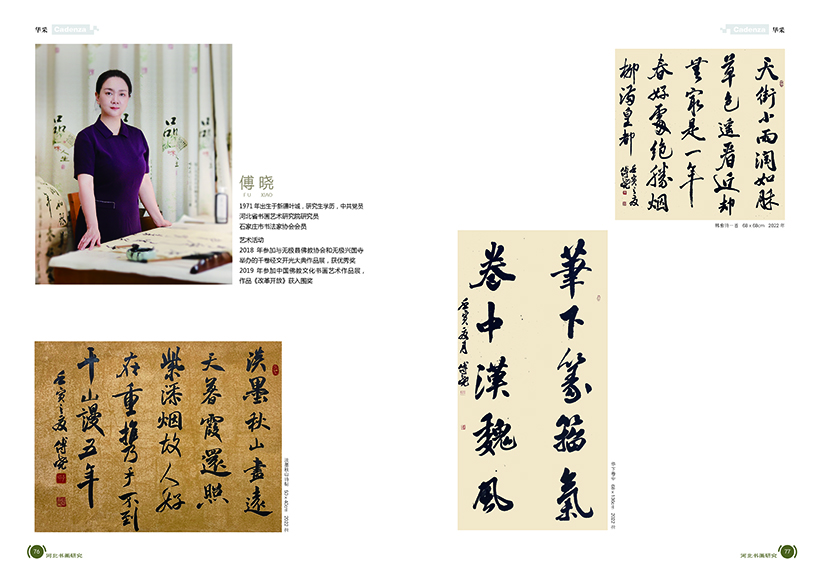 华采 Cadenza
傅晓
FU XIAO
1971年出生于新疆叶城,研究生学历,中共党员
河北省书画艺术研究院研究员
石家庄市书法家协会会员
艺术活动
2018 年参加与无极县佛教协会和无极兴国寺
举办的千卷经文开光大典作品展,获优秀奖
2019 年参加中国佛教文化书画艺术作品展,
作品《改革开放》获入围奖
淡墨秋山画远
天暮霞还照
紫添烟故人好
在重携手不到
千山谩五年
壬寅之夏 傅晓
50×40cm 2022 年
76 河北书画研究
Cadenza 华采
天街小雨润如酥
草色遥看近却
无最是一年
春好处绝胜烟
柳满皇都
壬寅之夏
傅晓
68×68cm 2022 年
笔下篆籀气
卷中汉魏风
壬寅夏月 傅晓
68×136cm 2022 年
河北书画研究 77